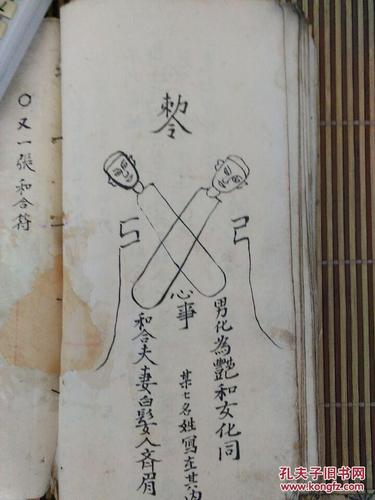 勅令
心事
男化為艷和女化同
某七名姓寫在其内
和合夫妻白髮人齊眉
○又一張和合符
孔夫子旧书网
www.kongfz.com